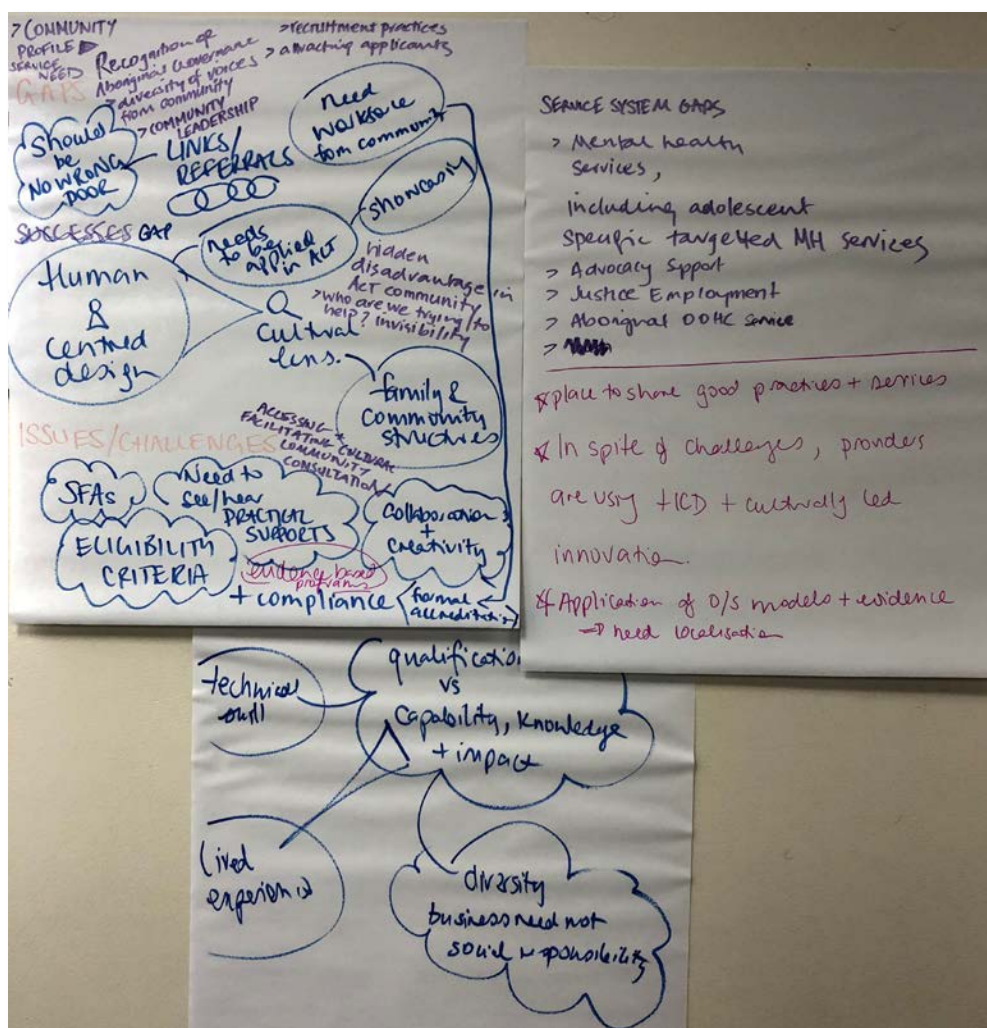 > COMMUNITY
PROFILE
SERVICE
NEED
Recognition of
Aboriginal Governance
> diversity of voices
from community
> COMMUNITY
LEADERSHIP
> recruitment practices
> attracting applicants
GAPS
Should
be
NO WRONG
DOOR
LINKS/
REFERRALS
need
workforce
from community
showcasing
SUCCESSES GAP
needs
to be
applied
in ACT
Human
&
centred
design
Cultural
lens.
hidden
disadvantage in
ACT community
> who are we trying to
help? invisibility
family &
community
structures
ISSUES/CHALLENGES
ACCESSING +
FACILITATING CULTURAL
COMMUNITY
CONSULTATION
SFAs
Need to
see/hear
PRACTICAL
SUPPORTS
Collaboration
+
Creativity
ELIGIBILITY
CRITERIA
evidence based
programs
+ compliance
formal
accreditation
SERVICE SYSTEM GAPS
> Mental health
services,
including adolescent
specific targetted MH services
> Advocacy Spport
> Justice Employment
> Aboriginal OOHC service
>
* place to share good practices + services
* In spite of challenges, providers
are using + ICD + culturally led
innovation.
* Application of O/S models + evidence
⇒ need localisation
technical
skill
qualification
vs
Capability, knowledge
+ impact
lived
experience
diversity
business need not
social responsibility